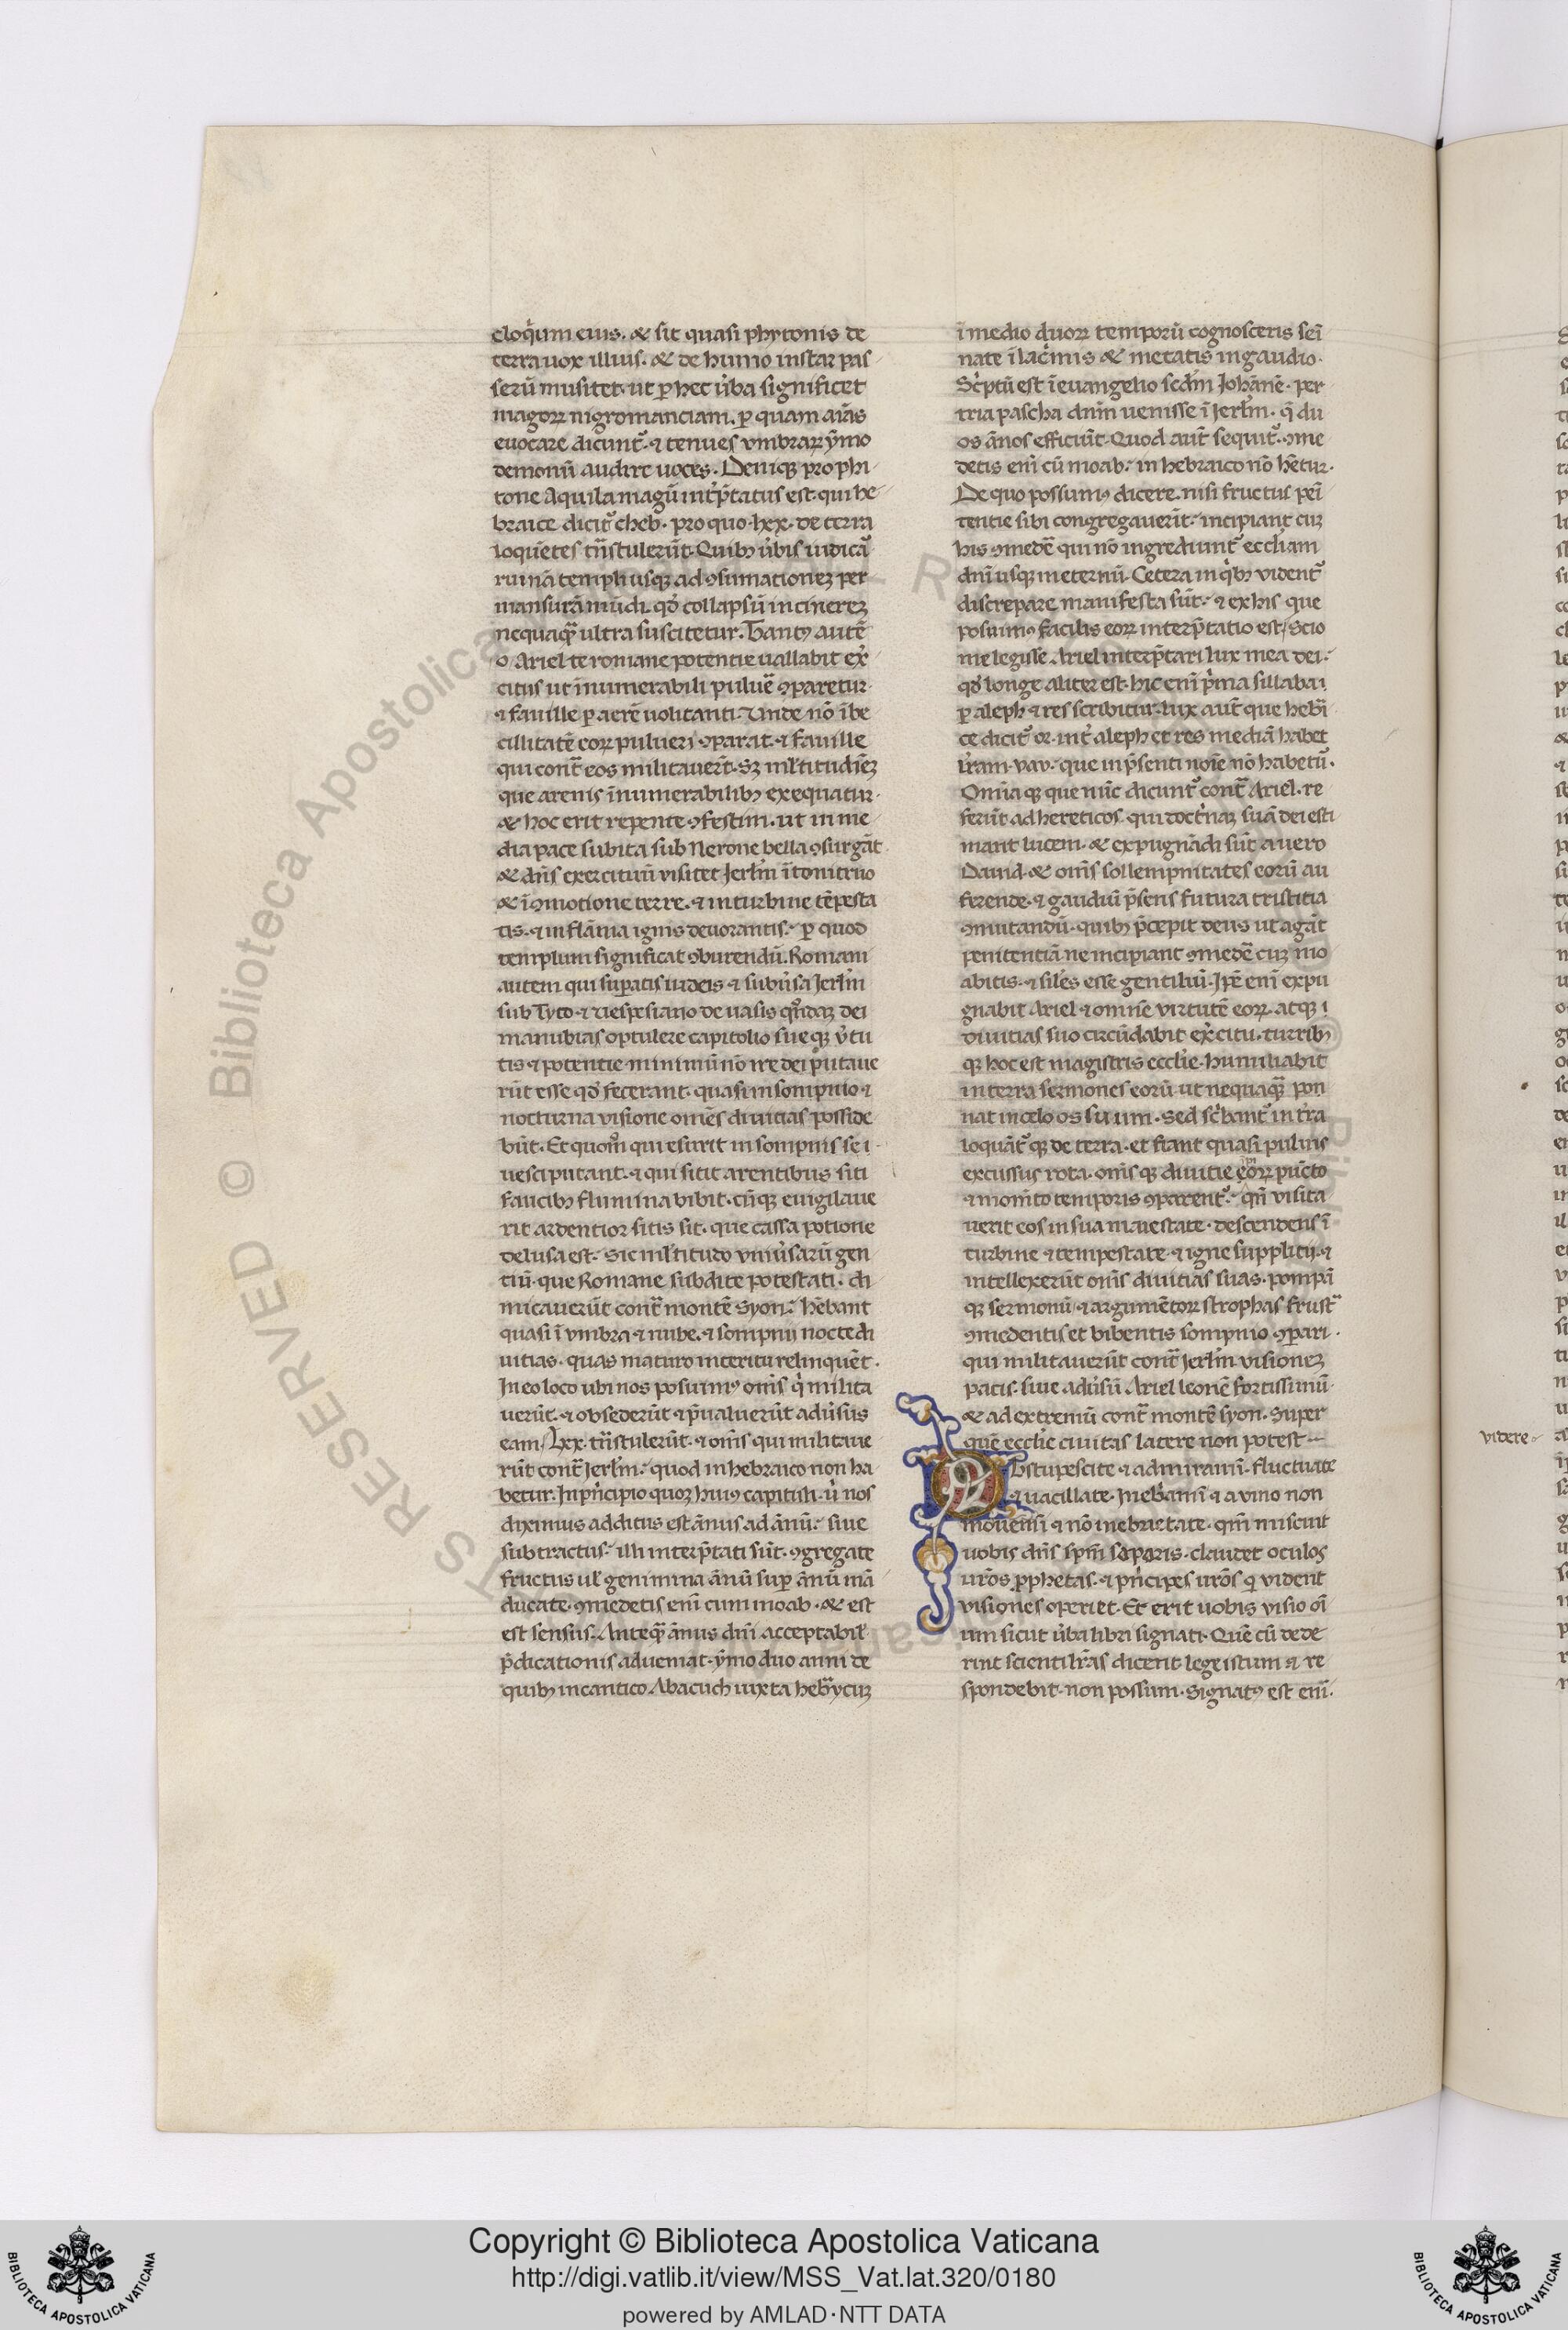 eloq̇um eius. & sit quasi phytonis de
terra uox illius. & de humo instar pas
serū musitet. ut ꝑ hec ủba significet
magoꝝ nigromanciam. ꝑ quam aīas
euocare dicunt᷑. ⁊ tenues vmbraꝝ ẏmo
demonū audire uoces. Deniqꝫ pro phi
tone Aquila magū int̓p̄tatus est. qui he
braice dicit᷑ cheb. pro quo .lxx. de terra
loquētes tn̄stulerūt. Quibꝫ ủbis iudicā
ruinā templi usqꝫ ad ꝯsumationeꝫ per
mansurā mūdi. qđ collapsū in cinereꝫ
nequaqᷓ ultra suscitetur. Tantꝰ autē
o Ariel te romane potentie uallabit ex̓
citus ut īnumerabili puluē ꝯparetur
⁊ fauille ꝑ aerē uolitanti. Unde nō ībe
cillitatē eoꝝ pulueri ꝯparat. ⁊ fauille
qui cont̄ eos militauerūt. sꝫ ml̓titudīeꝫ
que arenis īnumerabilibꝫ exequatur.
& hoc erit repente ꝯfestim. ut in me
dia pace subita sub Nerone bella ꝯsurgāt
& dn̄s exercituū visitet Jerl̓m ī tonitruo
& ī ꝯmotione terre. ⁊ in turbine tēpesta
tis. ⁊ in flāma ignis deuorantis. ꝑ quod
templum significat ꝯburendū. Romani
autem qui suꝑatis iudeis ⁊ subủsa Jerl̓m
sub Tyto ⁊ Uespesiano de uasis qͥdaꝫ dei
manubias optulere capitolio sueqꝫ v̓tu
tis ⁊ potentie minimū nō ire dei putaue
rūt esse qđ fecerant. quasi in sompnio ⁊
nocturna visione omēs diuitias posside
būt. Et quom̄ qui esurit in sompnis se i
uesci putant. ⁊ qui sitit arentibus siti
faucibꝫ flumina bibit. cūqꝫ euigilaue
rit ardentior sitis sit. que cassa potione
delusa est. sic ml̓titudo vniủsarū gen
tiū. que Romane subdite potestati. di
micauerūt cont̄ montē syon. hēbant
quasi ī vmbra ⁊ nube. ⁊ sompnij nocte di
uitias. quas maturo interitu relinquēt.
In eo loco ubi nos posuimꝰ om̄s q̇ milita
uerūt. ⁊ obsederūt ⁊ p̄ualuerūt adủsus
eam. Lxx. tn̄stulerūt. ⁊ om̄s qui militaue
rūt cont̄ Jerl̓m. quod in hebraico non ha
betur. In pͥncipio quoꝫ huiꝰ capituli. ủ nos
diximus additus est ānus ad ānū. siue
subtractus. illi interp̄tati sūt. ꝯgregate
fructus ul̓ genimina ānū suꝑ ānū mā
ducate. ꝯmedetis enī cum moab. & est
est sensus. Anteqᷓ ānus dn̄i acceptabil̓
p̄dicationis adueniat. ẏmo duo anni de
quibꝫ in cantico Abacuch iuxta heb̓ycuꝫ
ī medio duoꝝ temporū cognosceris semī
nate ī lac̓mis & metatis in gaudio.
Sc̓ptū est ī euangelio scđm Johānē. per
tria pascha dn̄m uenisse ī Jerl̓m. q̇ du
os ānos efficiūt. Quod aut̄ sequit᷑. ꝯme
detis enī cū moab. in hebraico nō hētur.
De quo possumꝰ dicere. nisi fructus peī
tentie sibi congregauerīt. incipiant cuꝫ
his ꝯmedē qui nō ingrediunt᷑ eccl̓iam
dn̄i usqꝫ in eternū. Cetera in qͥbꝫ vident᷑
discrepare manifesta sūt. ⁊ ex his que
posuimꝰ facilis eoꝝ interp̄tatio est. Scio
me legisse Ariel interp̄tari lux mea dei.
qđ longe aliter est. hic enī pͥma sillaba i
ꝑ aleph ⁊ res scribitur. lux aut̄ que hebͣi
ce dicit᷑ or. int̓ aleph et res mediā habet
l̓ram. vav. que in p̄senti noīe nō habetū.
Omīa qꝫ que nūc dicunt᷑ cont̄ Ariel. re
ferūt ad hereticos. qui doct̓naꝫ suā dei esti
mant lucem. & expugnādi sūt a uero
Dauid. & om̄s sollempnitates eorū au
ferende. ⁊ gaudiū p̄sens futura tristitia
ꝯmutandū. quibꝫ p̄cepit deus ut agāt
penitentiā ne incipiant ꝯmedē cuꝫ mo
abitis. ⁊ sil̓es esse gentiliū. Ip̄e enī expu
gnabit Ariel ⁊ omnē virtutē eoꝝ. atqꝫ i
diuitias suo circūdabit ex̓citu. turribꝫ
qꝫ hoc est magistris eccl̓ie. humiliabit
in terra sermones eorū. ut nequaqᷓ pon
nat in celo os suum. sed sc̓bant᷑ in t̓ra
loquāt᷑ qꝫ de terra. et fiant quasi puluis
excussus rota. om̄s qꝫ diuitie eoꝝ pūcto
⁊ mom̄to temporis ꝯparent᷑. qn̄ visita
uerit eos in sua maiestate. descendens ī
turbine ⁊ tempestate. ⁊ igne supplitij. ⁊
intellexerūt om̄s diuitias suas. pompā
qꝫ sermonū ⁊ argumētoꝝ strophas frustͣ
ꝯmedentis et bibentis sompnio ꝯpari.
qui militauerūt cont̄ Jerl̓m visioneꝫ
pacis. siue adủsū Ariel leonē fortissimū.
& ad extremū cont̄ montē syon. super
quē eccl̓ie ciuitas latere non potest
Obstupescite ⁊ admiramī. fluctuate
⁊ uacillate. Ineb̓amī ⁊ a vino non
mouensi ⁊ nō in ebrietate. qm̄ miscuit
uobis dn̄s sp̄m soporis. claudet oculos
ur̄os ꝓphetas. ⁊ pͥncipes ur̄os q̇ vident
visiones operiet. Et erit uobis visio oī
um sicut ủba libri signati. Quē cū dede
rint scienti lr̄as dicent lege istum ⁊ re
spondebit. non possum. signatꝰ est enī.
videre
Copyright © Biblioteca Apostolica Vaticana
http://digi.vatlib.it/view/MSS_Vat.lat.320/0180
powered by AMLAD·NTT DATA